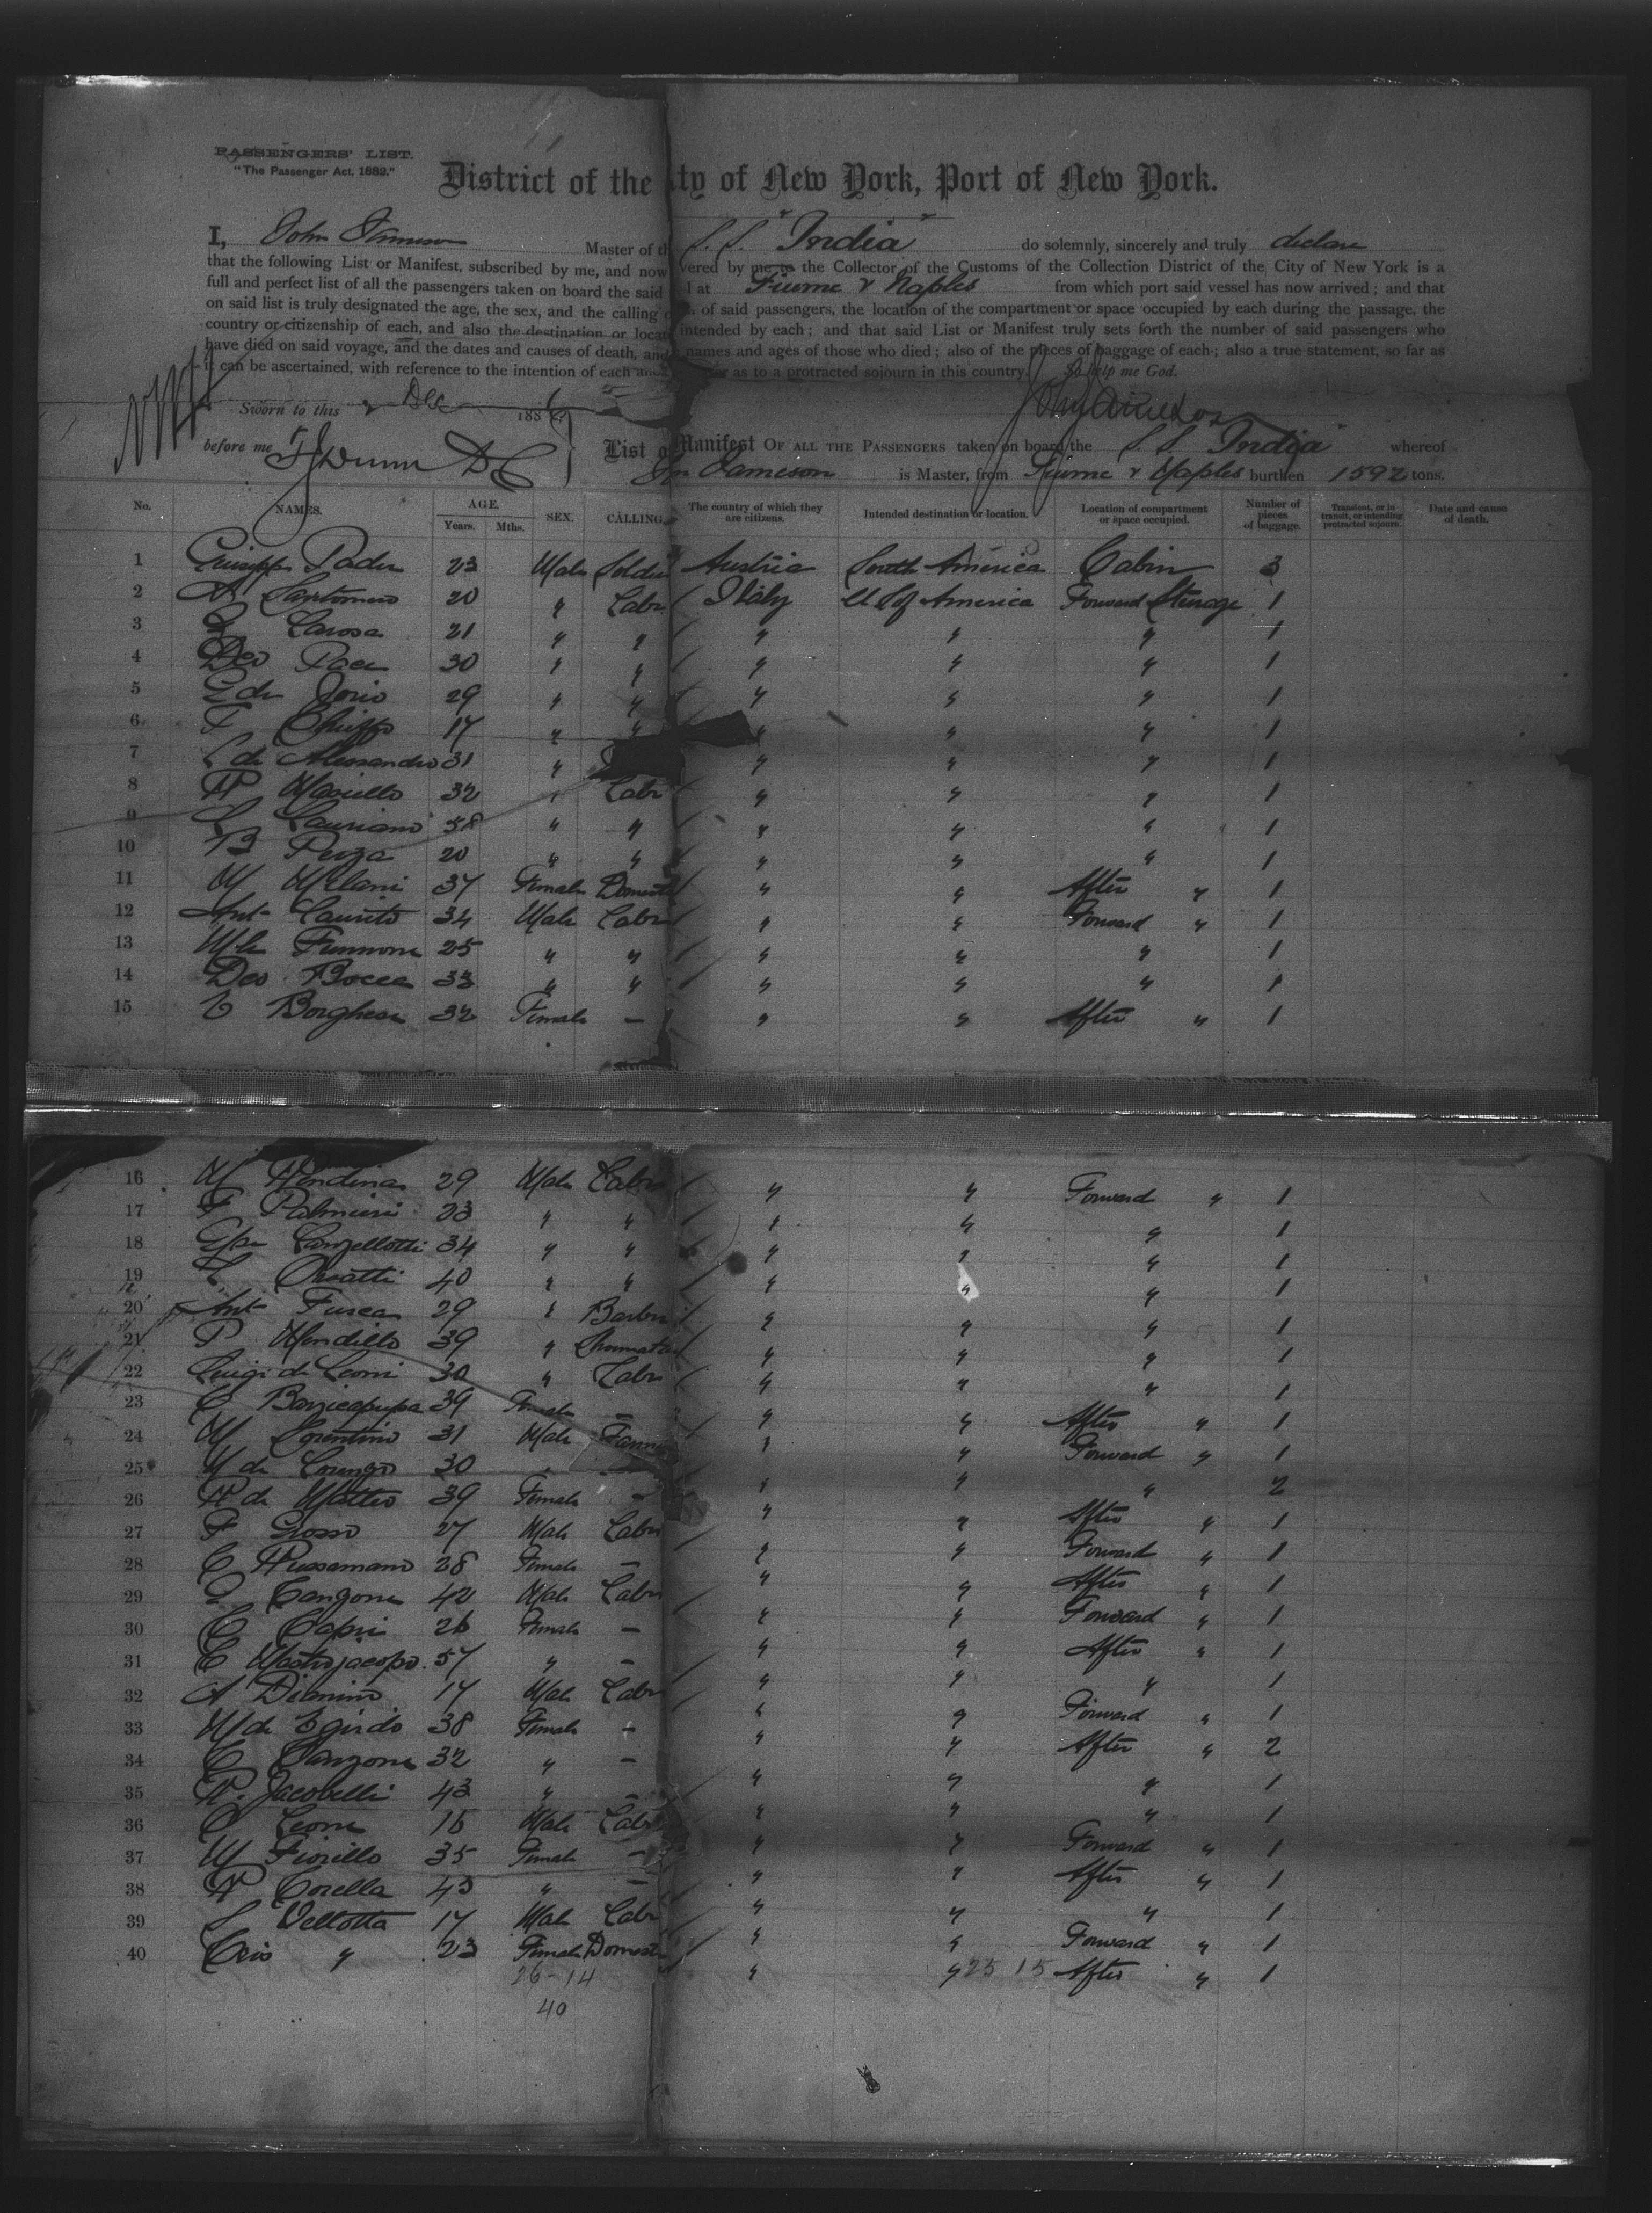 PASSENGERS' LIST.
"The Passenger Act, 1882."
District of the ity of New York, Port of New York.
I, John Jameson Master of th S.S. "India" do solemnly, sincerely and truly declare
that the following List or Manifest, subscribed by me, and now vered by me to the Collector of the Customs of the Collection District of the City of New York is a
full and perfect list of all the passengers taken on board the said at Fiume & Naples from which port said vessel has now arrived; and that
on said list is truly designated the age, the sex, and the calling of said passengers, the location of the compartment or space occupied by each during the passage, the
country or citizenship of each, and also the destination or locat intended by each; and that said List or Manifest truly sets forth the number of said passengers who
have died on said voyage, and the dates and causes of death, and names and ages of those who died; also of the pieces of baggage of each; also a true statement, so far as
it can be ascertained, with reference to the intention of each as to a protracted sojourn in this country. So help me God.
Sworn to this 2 Dec 188
before me
List o Manifest OF ALL THE PASSENGERS taken on board the S.S. India whereof
Jn Jameson is Master, from Fiume & Naples burthen 1592 tons.
No. NAMES. AGE. Years. Mths. SEX. CALLING. The country of which they are citizens. Intended destination or location. Location of compartment or space occupied. Number of pieces of baggage. Transient, or in transit, or intending protracted sojourn. Date and cause of death.
1 Padu 23 Male Soldi Austria South America Cabin 3
2 A 20 " Labr Italy U S of America Forward Steerage 1
3 Carosa 21 " " " " " 1
4 Deo Pace 30 " " " " " 1
5 E de Iorio 29 " " " " " 1
6 F 17 " " " " " 1
7 de Alessandro 31 " " " " 1
8 Masiello 32 " Labr " " " 1
9 Lauriano 38 " " " " " 1
10 B Penza 20 " " " " " 1
11 M Milani 37 Female Domest " " After " 1
12 Ant Caurito 34 Male Labr " " Forward " 1
13 25 " " " " " 1
14 Deo Bocca 33 " " " " " 1
15 Borghesi 32 Female — " " After " 1
16 M 29 Male Labr " " Forward " 1
17 F Palmieri 23 " " " " " 1
18 Gpe Canzellotti 34 " " " " " 1
19 Orsatti 40 " " " " " 1
20 Ant Fusca 29 " Barbr " " " 1
21 P Mendillo 39 " " " " 1
22 Luigi de Leoni 30 " Labr " " " 1
23 C 39 Female — " " After " 1
24 M Sorentino 31 Male Farm " " Forward " 1
25 M de Lorenzo 30 " " " " 2
26 de Matteo 39 Female — " " After " 1
27 F Grosso 27 Male Labr " " Forward " 1
28 C 28 Female — " " After " 1
29 Canzone 42 Male Labr " " Forward " 1
30 C Capri 26 Female — " " After " 1
31 C Mastrojacopo 57 " — " " " 1
32 A Diannino 17 Male Labr " " Forward " 1
33 M de Egirdo 38 Female — " " After " 2
34 C Canzone 32 " — " " " 1
35 Jacobelli 43 " — " " " 1
36 C Leone 16 Male Labr " " Forward " 1
37 M Fiorillo 35 Female — " " After " 1
38 Corella 43 " — " " " 1
39 Vellotta 17 Male Labr " " Forward " 1
40 " 23 Female Domest " " 25 15 After " 1
26-14
40